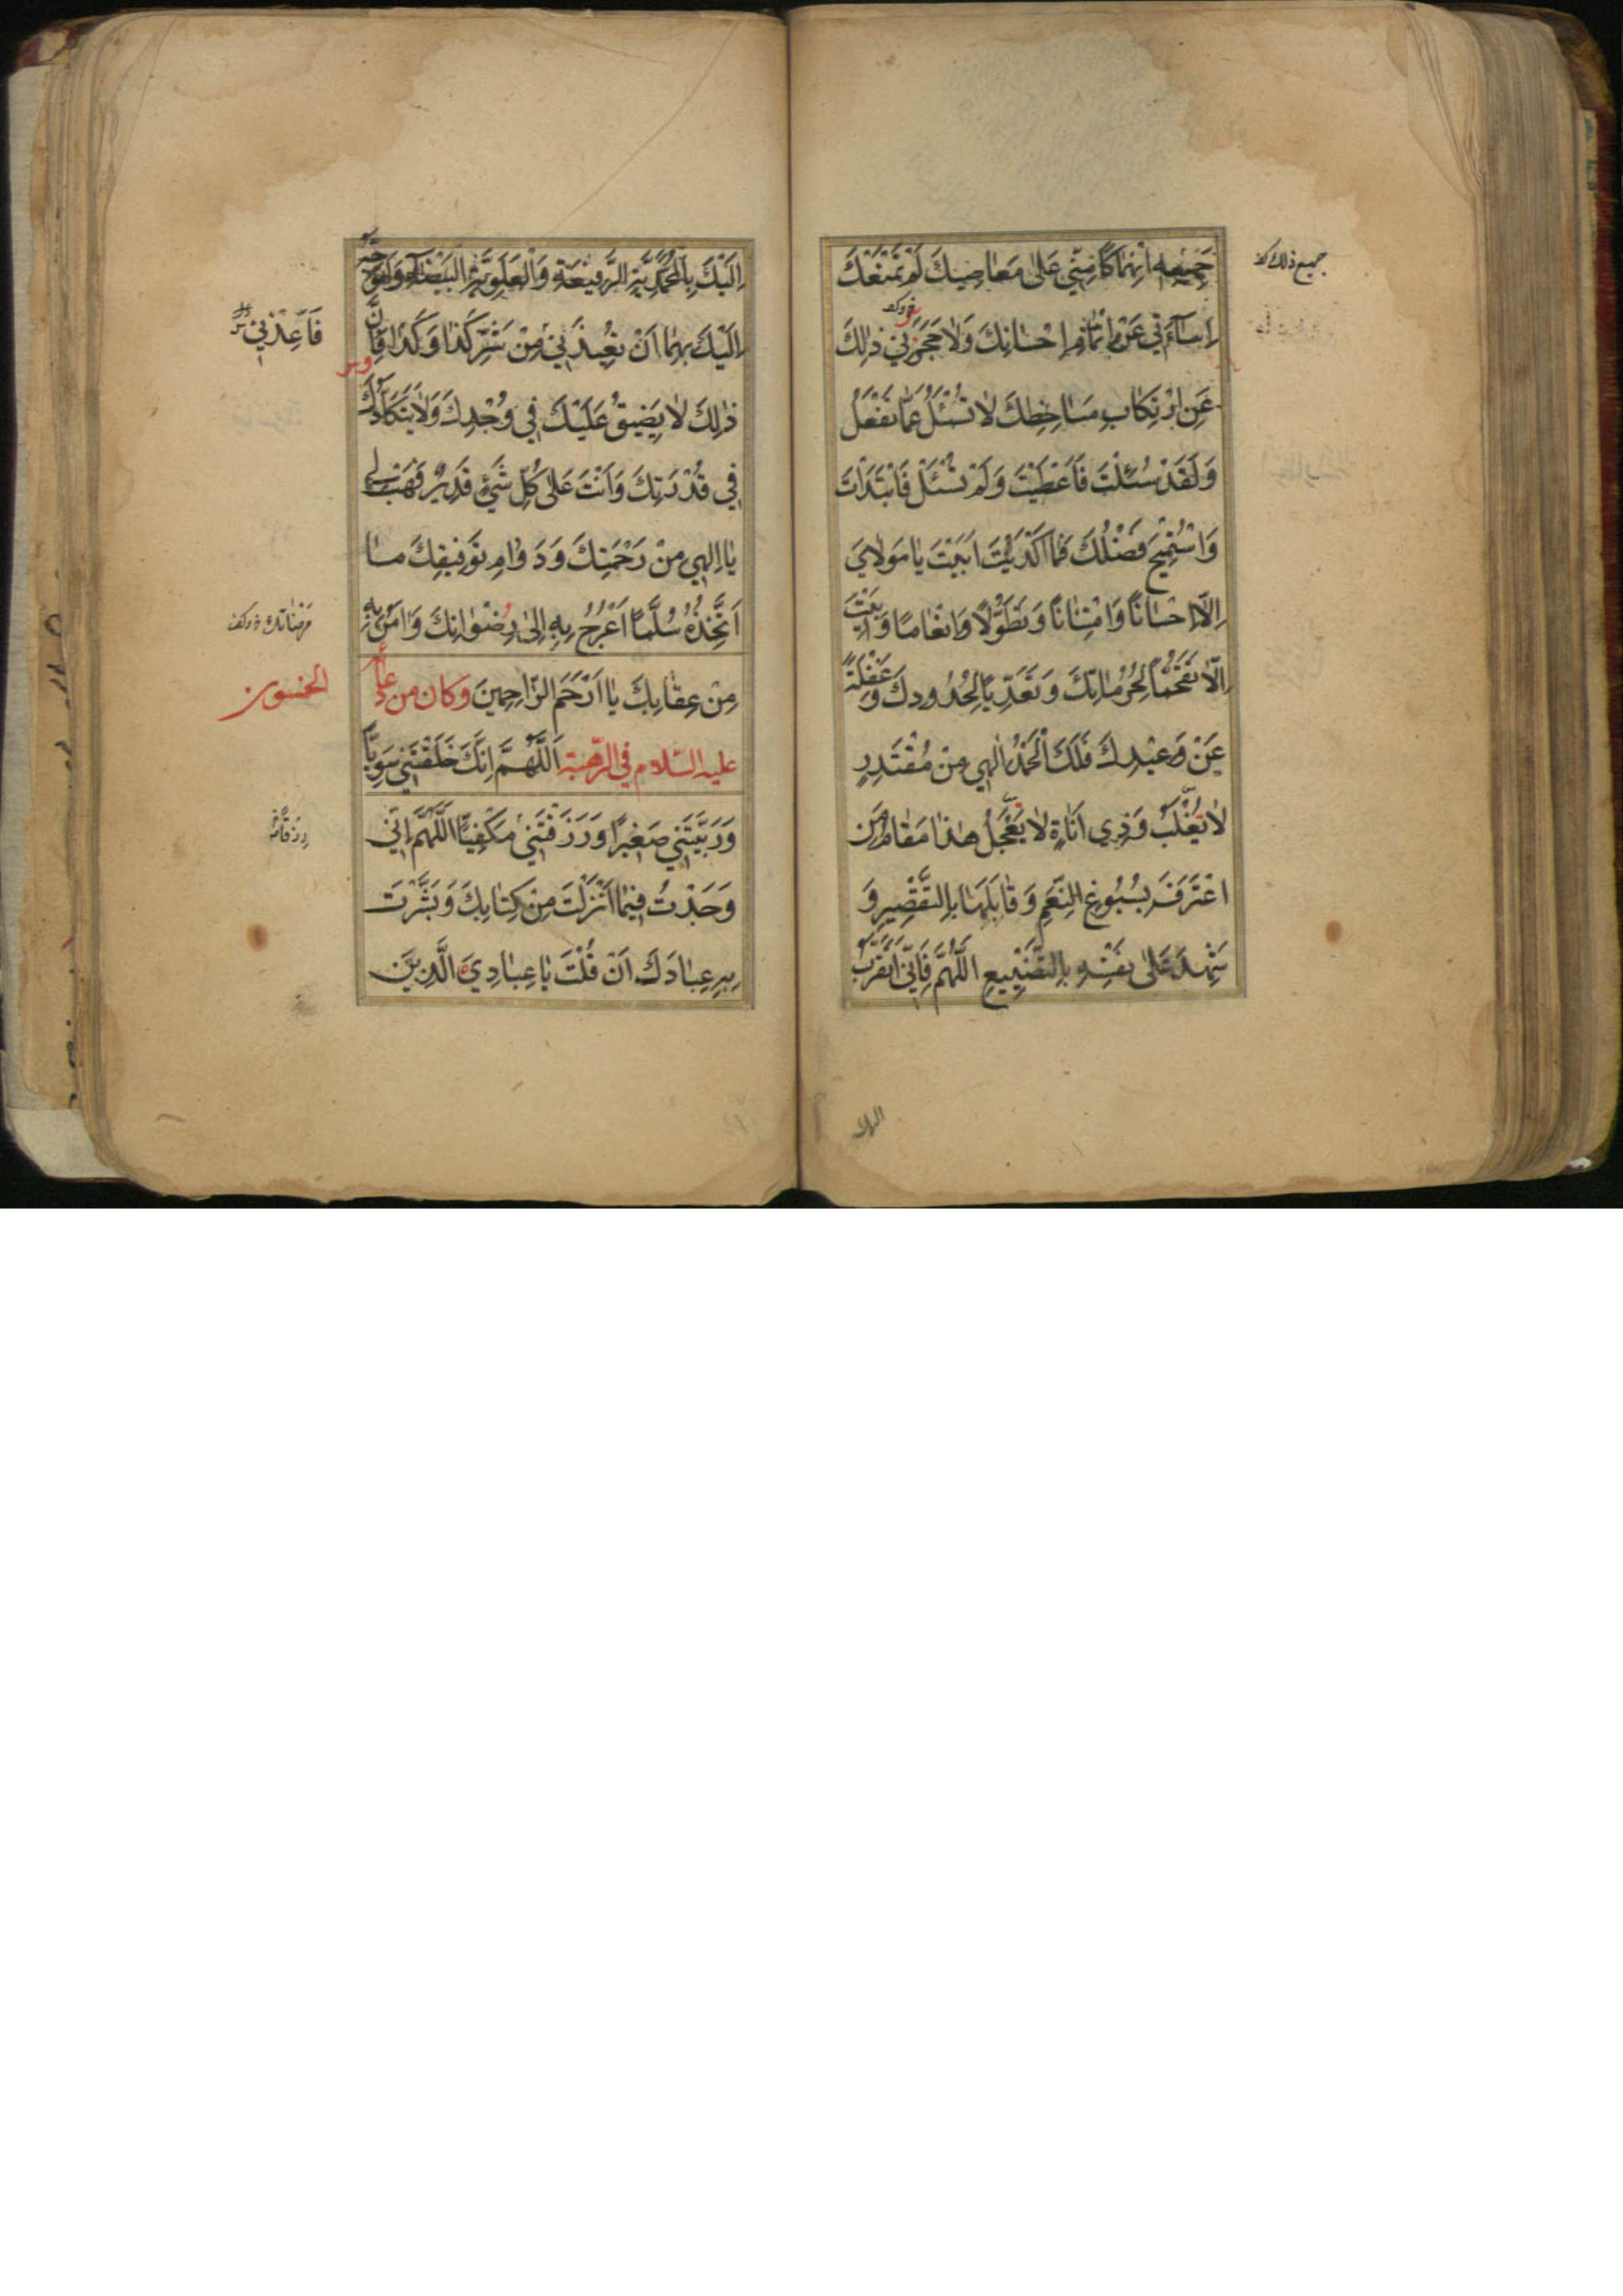 جَمِيعِهِ انْهِمَاكًا مِنِّي عَلىٰ مَعَاصِيكَ لَمْ تَمْنَعْكَ
جميع ذلك
اِسَاءَتِي عَنْ اِتْمَامِ اِحْسَانِكَ وَلَا حَجَزَنِي ذٰلِكَ
عَنِ ارْتِكَابِ مَسَاخِطِكَ لَا تُسْئَلُ عَمَّا تَفْعَلُ
وَلَقَدْ سُئِلْتَ فَاَعْطَيْتَ وَلَمْ تُسْئَلْ فَابْتَدَاْتَ
وَاسْتُمِيحَ فَضْلُكَ فَمَا اَكْدَيْتَ اَبَيْتَ يَا مَوْلَايَ
اِلَّا اِحْسَانًا وَامْتِنَانًا وَتَطَوُّلًا وَاِنْعَامًا وَاَبَيْتُ
اِلَّا تَقَحُّمًا لِحُرُمَاتِكَ وَتَعَدِّيًا لِحُدُودِكَ وَغَفْلَةً
عَنْ وَعِيدِكَ فَلَكَ الْحَمْدُ اِلٰهِي مِنْ مُقْتَدِرٍ
لَا يُغْلَبُ وَذِي اَنَاةٍ لَا يَعْجَلُ هٰذَا مَقَامُ مَنِ
اعْتَرَفَ بِسُبُوغِ النِّعَمِ وَقَابَلَهَا بِالتَّقْصِيرِ وَ
شَهِدَ عَلىٰ نَفْسِهِ بِالتَّضْيِيعِ اَللّٰهُمَّ فَاِنِّي اَتَقَرَّبُ
اِلَيْكَ بِالْمُحَمَّدِيَّةِ الرَّفِيعَةِ وَالْعَلَوِيَّةِ الْبَيْضَاءِ وَاَتَوَجَّهُ
اِلَيْكَ بِهِمَا اَنْ تُعِيذَنِي مِنْ شَرِّ كَذَا وَكَذَا فَاِنَّ
فَاَعِذْنِي
ذٰلِكَ لَا يَضِيقُ عَلَيْكَ فِي وُجْدِكَ وَلَا يَتَكَاَّدُكَ
فِي قُدْرَتِكَ وَاَنْتَ عَلىٰ كُلِّ شَيْءٍ قَدِيرٌ فَهَبْ لِي
يَا اِلٰهِي مِنْ رَحْمَتِكَ وَدَوَامِ تَوْفِيقِكَ مَا
اَتَّخِذُهُ سُلَّمًا اَعْرُجُ بِهِ اِلىٰ رِضْوَانِكَ وَاٰمَنُ بِهِ
مرضاتك
مِنْ عِقَابِكَ يَا اَرْحَمَ الرَّاحِمِينَ وكان من دعائه
الخمسون
عليه السّلام في الرّهبة اَللّٰهُمَّ اِنَّكَ خَلَقْتَنِي سَوِيًّا
وَرَبَّيْتَنِي صَغِيرًا وَرَزَقْتَنِي مَكْفِيًّا اَللّٰهُمَّ اِنِّي
وَجَدْتُ فِيمَا اَنْزَلْتَ مِنْ كِتَابِكَ وَبَشَّرْتَ
بِهِ عِبَادَكَ اَنْ قُلْتَ يَا عِبَادِيَ الَّذِينَ